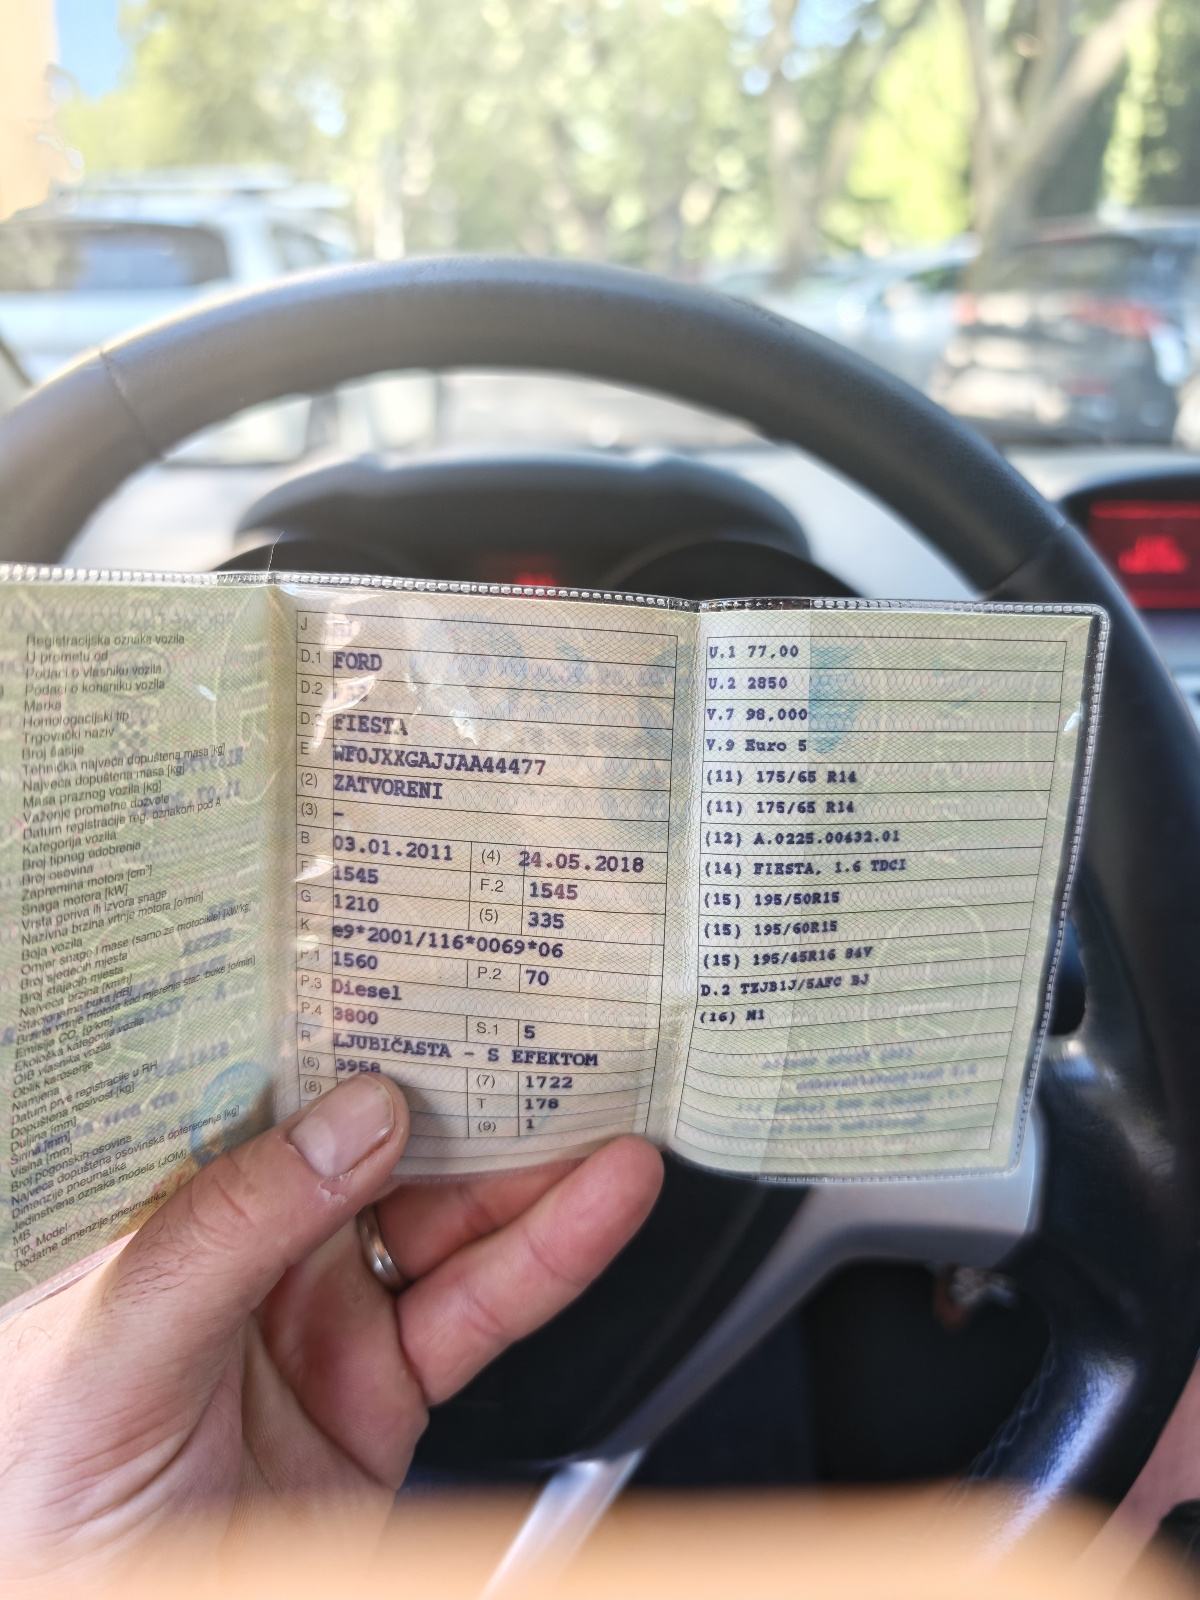 Registracijska oznaka vozila
U prometu od
Podaci o vlasniku vozila
Podaci o korisniku vozila
Marka
Homologacijski tip
Trgovački naziv
Broj šasije
Tehnička najveća dopuštena masa [kg]
Najveća dopuštena masa [kg]
Masa praznog vozila [kg]
Važenje prometne dozvole
Datum registracije reg. oznakom pod A
Kategorija vozila
Broj tipnog odobrenja
Broj osovina
Zapremina motora [cm³]
Snaga motora [kW]
Vrsta goriva ili izvora snage
Nazivna brzina vrtnje motora [o/min]
Boja vozila
Omjer snage i mase (samo za motocikle) [kW/kg]
Broj sjedećih mjesta
Broj stajaćih mjesta
Najveća brzina [km/h]
Stacionarna buka [dB]
Brzina vrtnje motora kod mjerenja stac. buke [o/min]
Emisija CO₂ [g/km]
Ekološka kategorija vozila
OIB vlasnika vozila
Oblik karoserije
Namjena
Datum prve registracije u RH
Dopuštena nosivost [kg]
Duljina [mm]
Širina [mm]
Visina [mm]
Broj pogonskih osovina
Najveća dopuštena osovinska opterećenja [kg]
Dimenzije pneumatika
Jedinstvena oznaka modela (JOM)
MB
Tip, Model
Dodatne dimenzije pneumatika
J
D.1 FORD
D.2
D.3 FIESTA
E WF0JXXGAJJAA44477
(2) ZATVORENI
(3) –
B 03.01.2011 (4) 24.05.2018
F.1 1545 F.2 1545
G 1210 (5) 335
K e9*2001/116*0069*06
P.1 1560 P.2 70
P.3 Diesel
P.4 3800 S.1 5
R LJUBIČASTA - S EFEKTOM
(6) 3958 (7) 1722
(8) T 178
(9) 1
U.1 77,00
U.2 2850
V.7 98,000
V.9 Euro 5
(11) 175/65 R14
(11) 175/65 R14
(12) A.0225.00632.01
(14) FIESTA, 1.6 TDCI
(15) 195/50R15
(15) 195/60R15
(15) 195/45R16 84V
D.2 TZJB1J/5AFC BJ
(16) M1